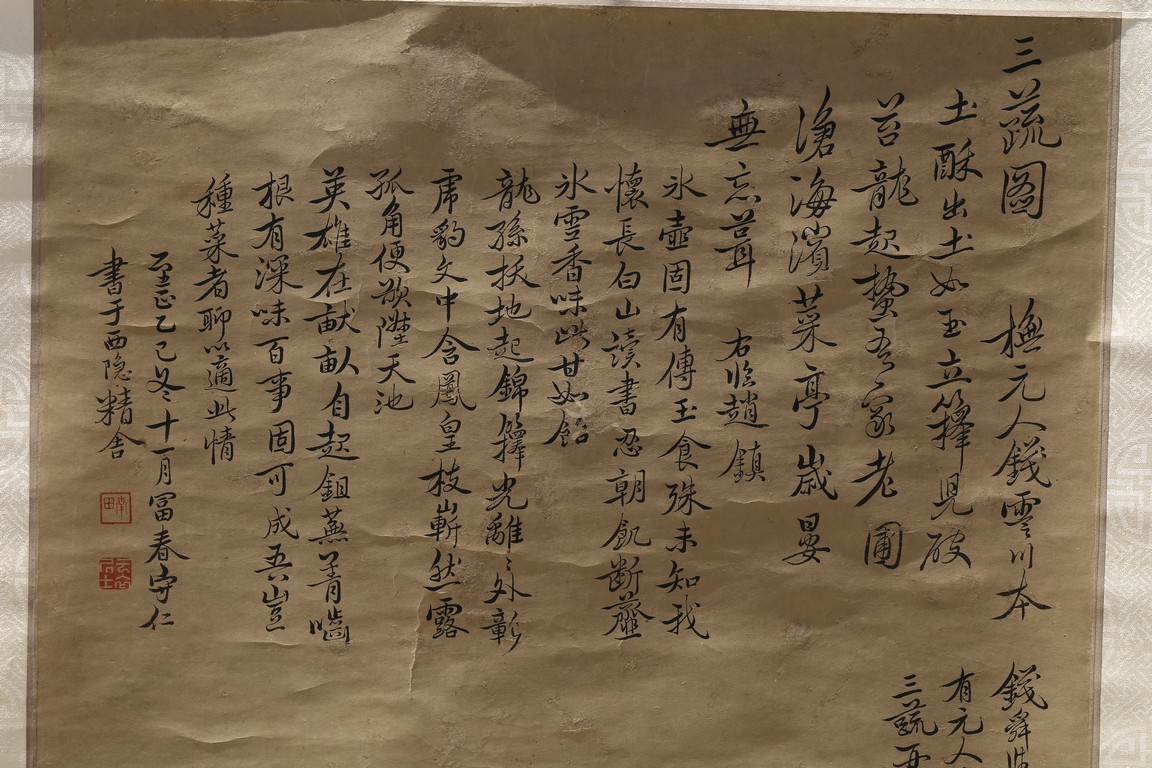 三蔬图 橅元人錢霅川本
土酥出土如玉立籜見破
苔龍起蟄吾家老圃
滄海濱菜亭歲晏
無忘葺 右临趙鎮
氷壺固有傳玉食殊未知我
懷長白山讀書忍朝飢断虀
氷雪香味此甘如飴
龍孫抶地起錦籜光離〻外彰
虎豹文中含鳳皇枝嶄然露
孤角便欲陞天池
英雄在畎畒自起鉏蕪菁嚙
根有深味百事固可成吾豈
種菜者聊以適此情
至正乙己冬十一月冨春守仁
書于西隐精舍
錢舜
有元人
三蔬